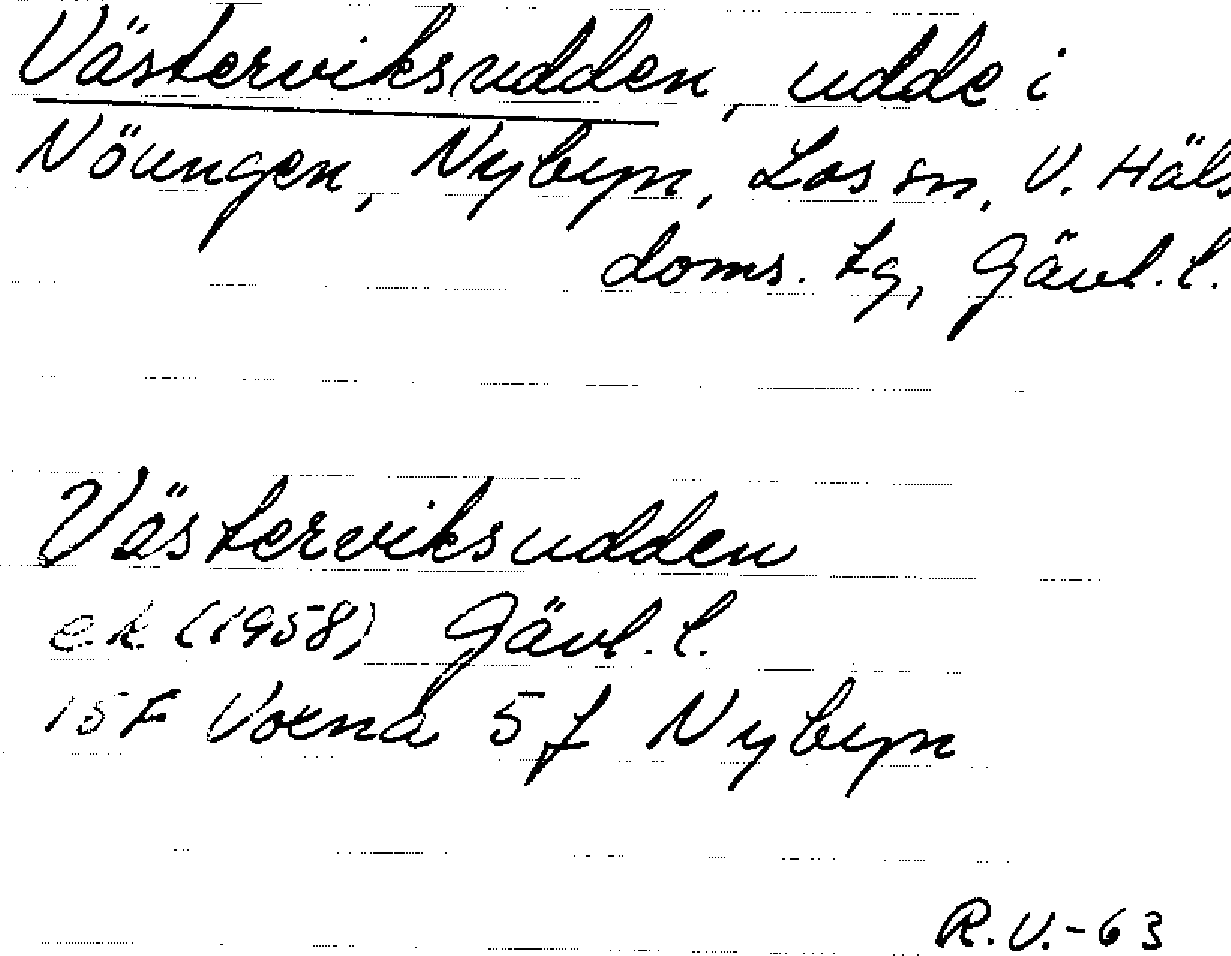 Västerviksudden, udde i
Nöungen, Nybyn, Los sn, V. Häls
doms. lg, Gävl. l.
Västerviksudden
e.k (1958) Gävl. l.
15F Voxna 5f Nybyn
R.V.-63